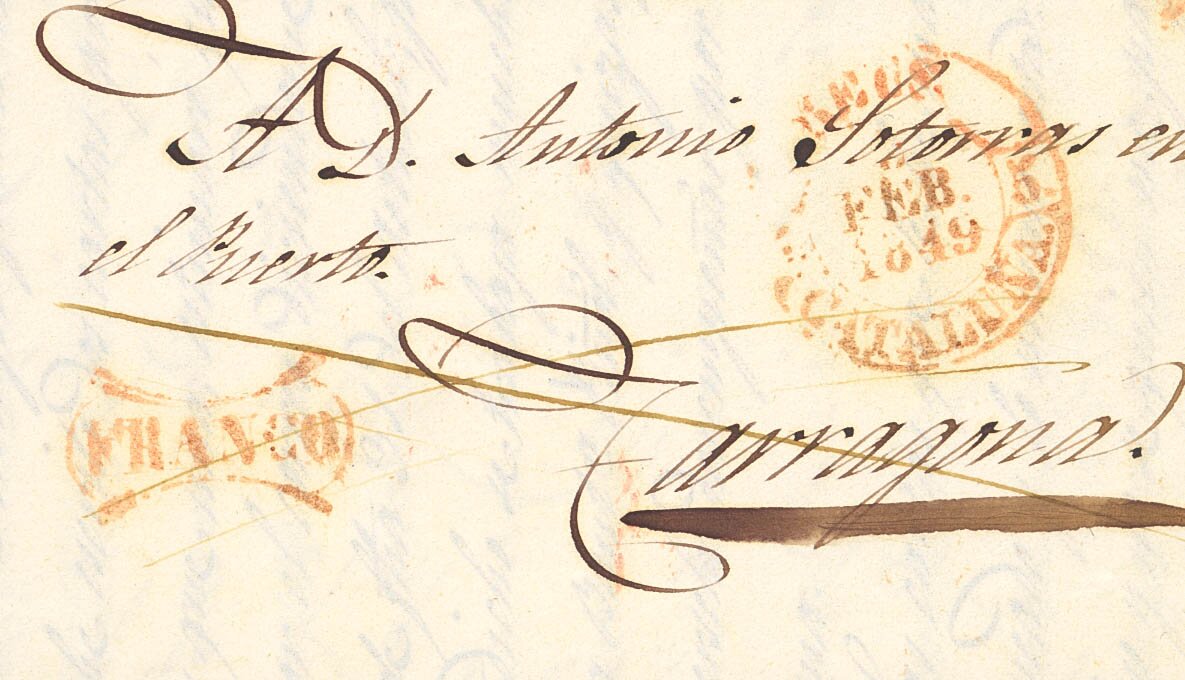 A D. Antonio Sotorras en
el Puerto.
Tarragona.
FRANCO
FEB.
1849
CATALUÑA.